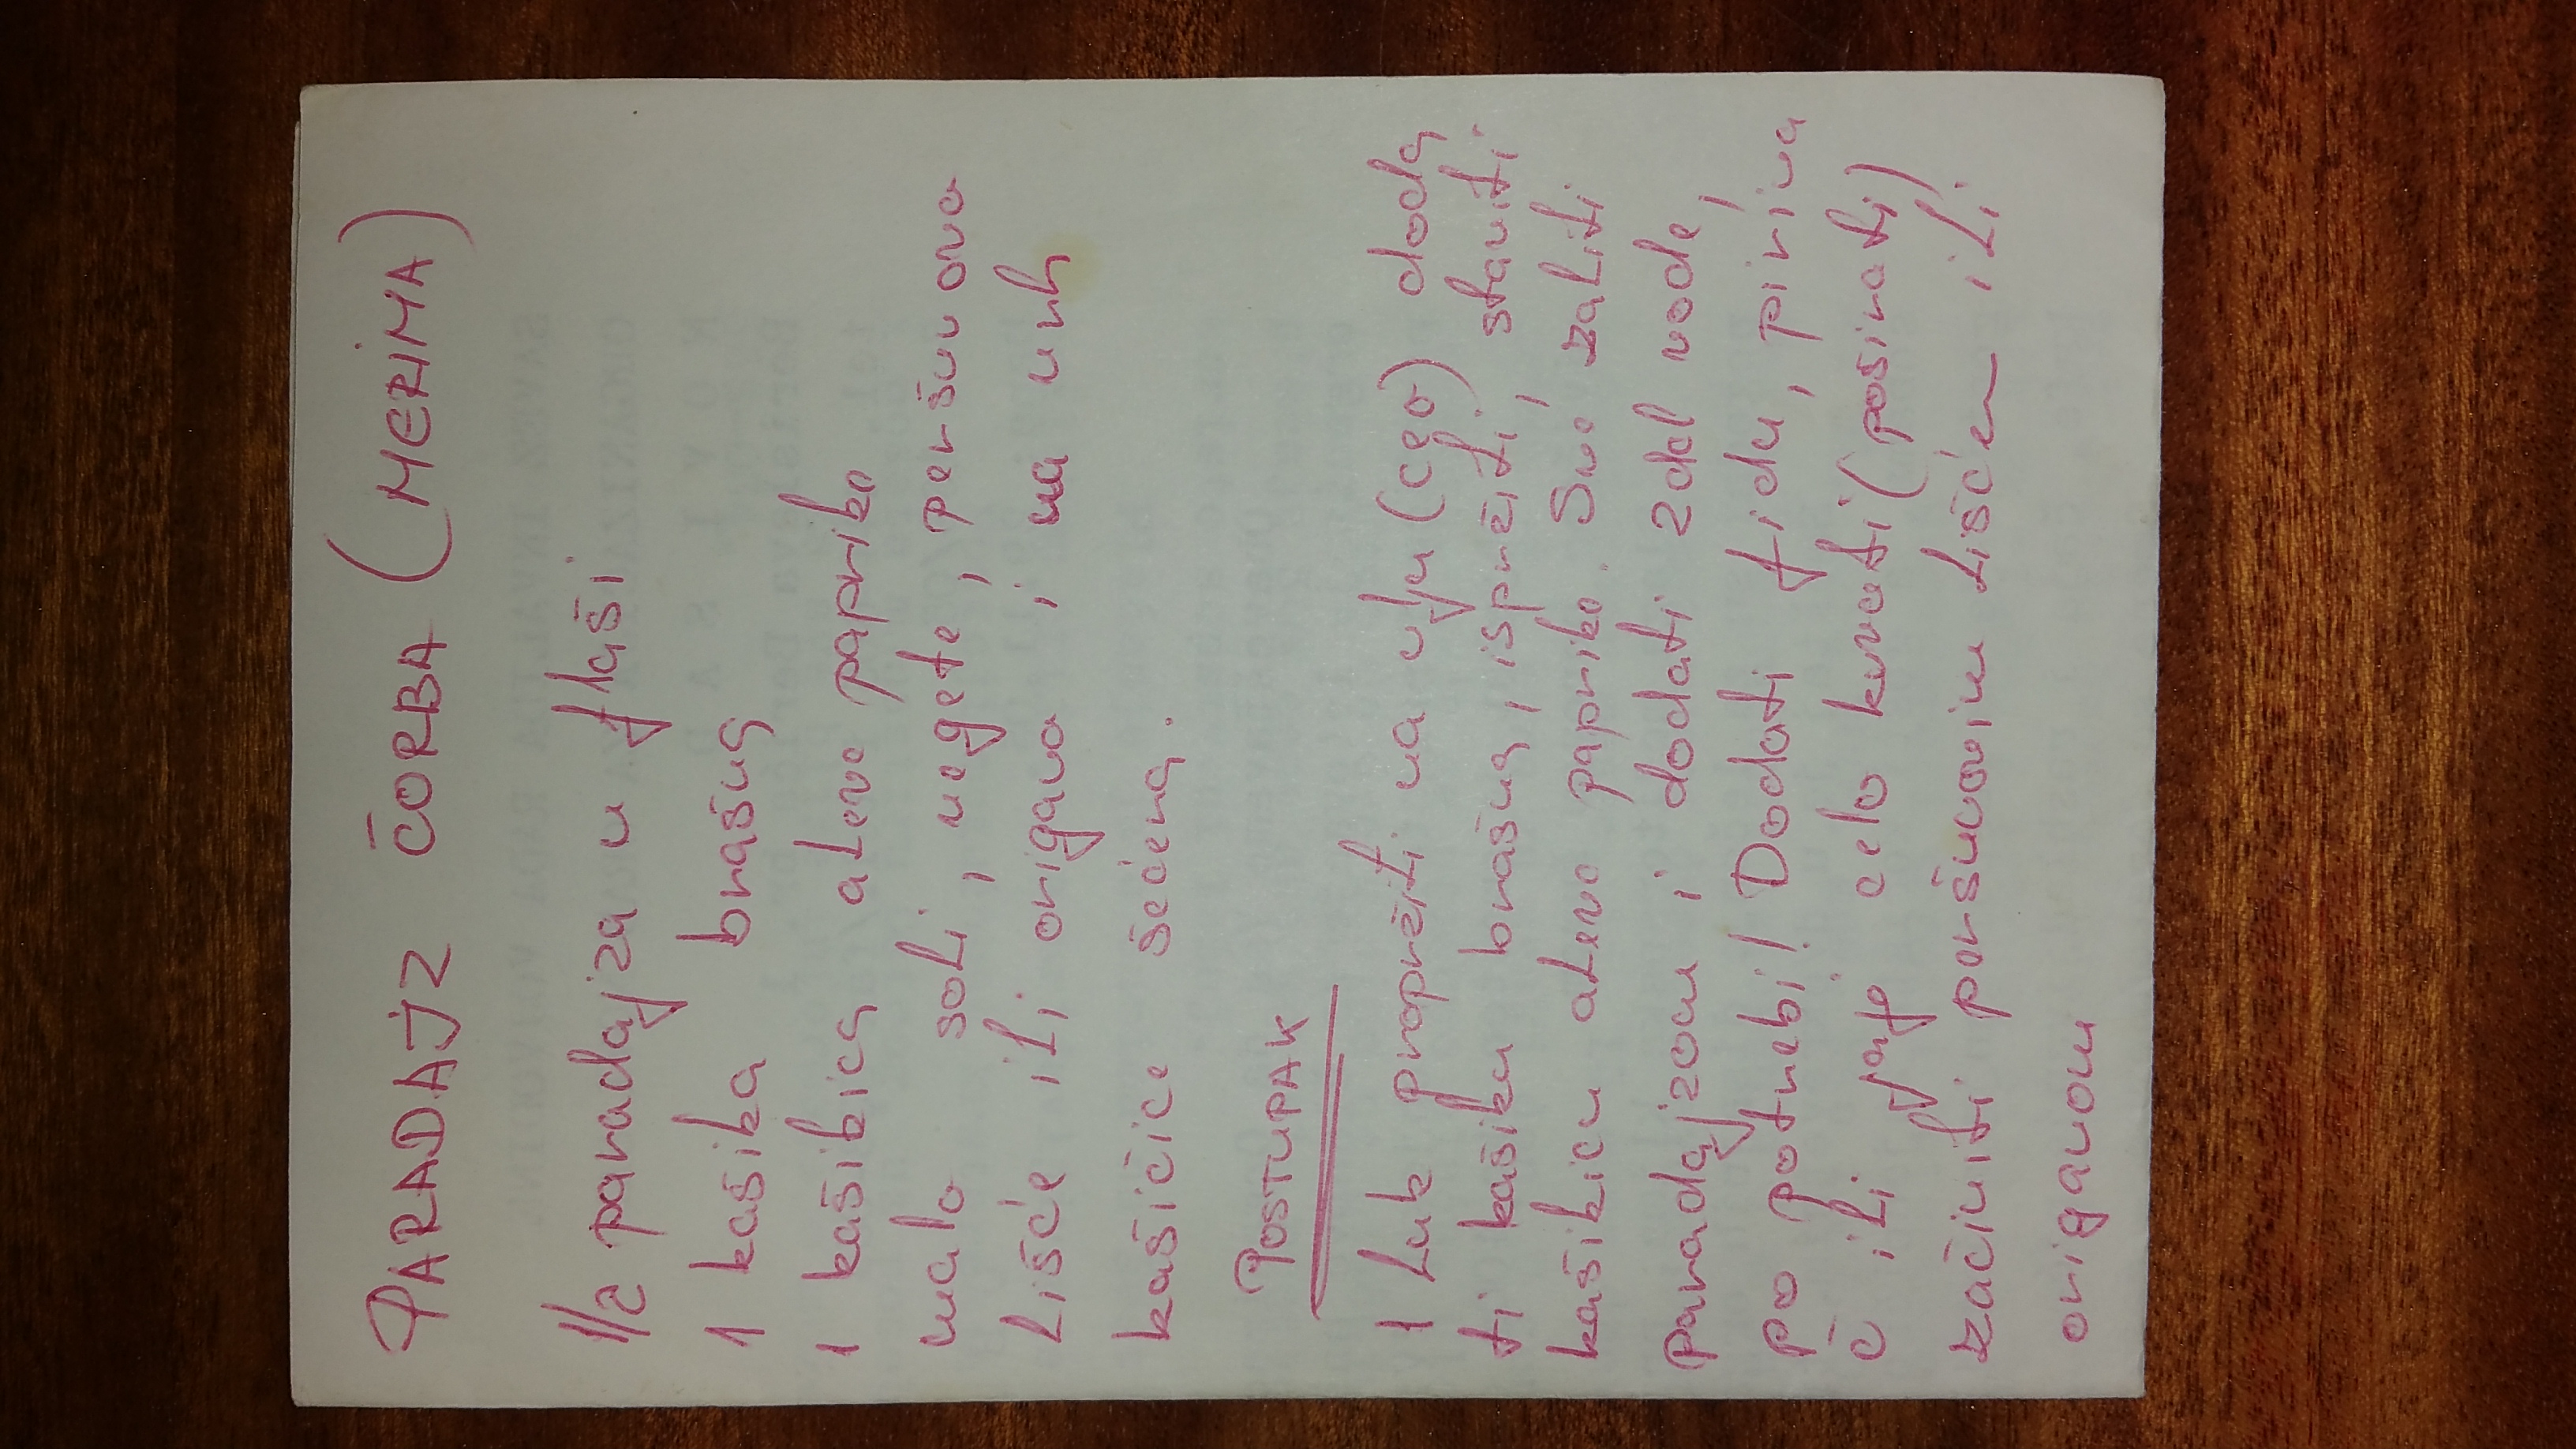 PARADAJZ ČORBA (MERIMA)
1/2 paradajza u flaši
1 kašika brašna
1 kašikica aleve paprike
malo soli, vegete, peršunova
lišće ili origana i na vrh
kašičice šećera.
POSTUPAK
1 luk propržiti na ulju (ceo) doda
ti kašiku brašna, ispržiti, staviti
kašikicu aleve paprike. Sve zaliti
paradajzom i dodati 2dcl vode,
po potrebi! Dodati fidu, pirina
č ili jaje celo kuvati (poširati)
začiniti peršunovim lišćem ili
origanom